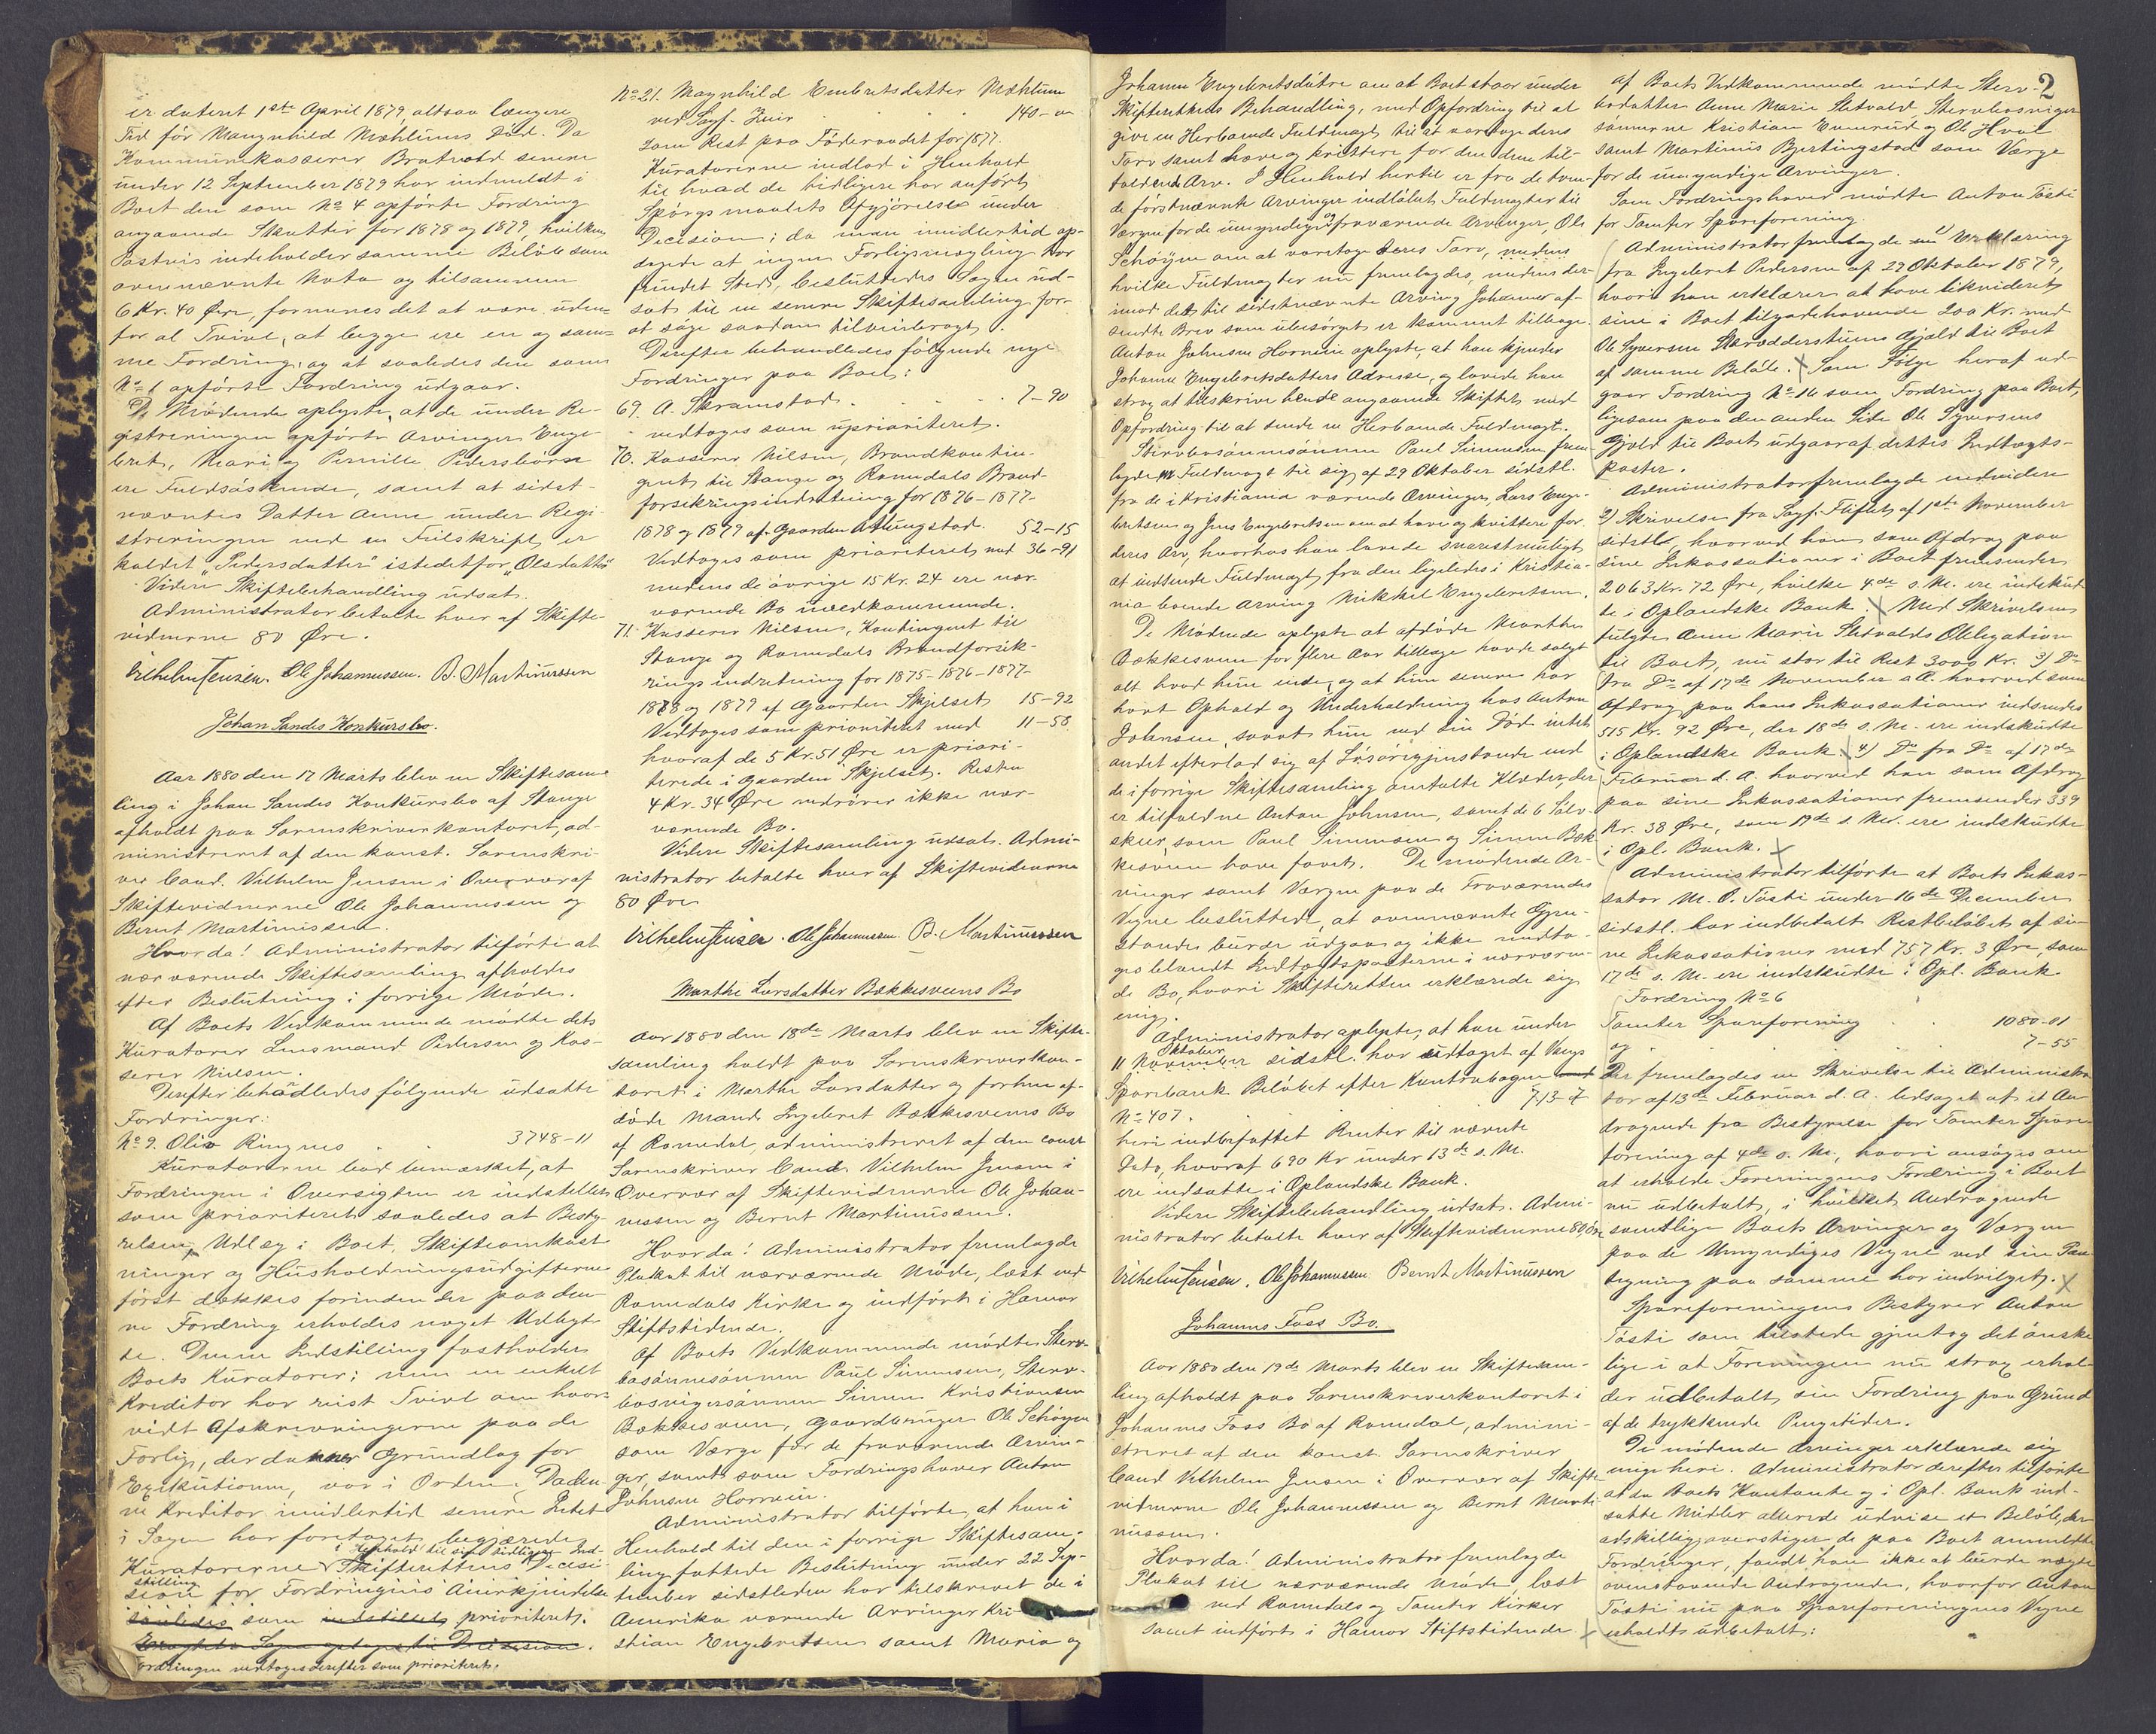 er dateret 1ste April 1879, altsaa længere
Tid før Mangnhild Mæhlums Død. Da
Kommunekasserer Bratvold senere
under 12 September 1879 har indmeldt i
Boet den som No 4 opførte Fordring
angaaende Skatter for 1878 og 1879, hvilken
Postvis indeholder samme Beløb som
ovennævnte Nota og tilsammen
6 Kr. 40 Øre, formenes det at være uden-
for al Tvivl, at begge ere en og sam-
me Fordring, og at saaledes den som
No 6 opførte Fordring udgaar.
De Mødende oplyste, at de under Re-
gistreringen opførte Arvinger Enge-
bret, Mari og Pernille Pedersbørn
ere Fuldsøskende, samt at sidst-
nævntes Datter Anne under Regi-
streringen ved en Feilskrift er
kaldet "Pedersdatter" istedetfor "Olsdatter"
Videre Skiftebehandling udsat.
Administrator betalte hver af Skifte-
vidnerne 80 Øre.
Vilhelm Jensen. Ole Johannessen. B. Martinussen
Johan Sandes Konkursbo.
Aar 1880 den 17 Marts blev en Skiftesam-
ling i Johan Sandes Konkursbo af Stange
afholdt paa Sorenskriverkontoret, ad-
ministreret af den konst. Sorenskri-
ver Cand. Vilhelm Jensen i Overvær af
Skiftevidnerne Ole Johannessen og
Bernt Martinussen.
Hvorda! Administrator tilførte at
nærværende Skiftesamling afholdes
efter Beslutning i forrige Møde.
Af Boets Vedkommende mødte dets
Kuratorer Lensmand Pedersen og Kas-
serer Nielsen.
Derefter behandledes følgende udsatte
Fordringer:
No 9. Olia Ringnes . . 3748-11
Kuratorerne bad bemærket, at
Fordringen i Oversigten er indstillet
som prioriteret saaledes at Besty-
relsens Udlæg i Boet, Skifteomkost-
ninger og Husholdningsudgifterne
først dækkes forinden der paa den-
ne Fordring erholdes noget Udbyt-
te. Denne Indstilling fastholder
Boets Kuratorer; men en enkelt
Kreditor har reist Tvivl om hvor-
vidt Afskrivningerne paa de
Forlig, der danner Grundlag for
Exekutionen, var i Orden. Da den-
ne Kreditor imidlertid senere Intet
i Sagen har foretaget, begjærede
Kuratorerne i Henhold til sin tidligere Ind-
stilling Skifterettens Decisi-
sion for Fordringens Anerkjendelse
saaledes som indstillet, prioriteret.
Fordringen vedtoges derefter som prioriteret.
No 21. Magnhild Embretsdatter Mæhlum
ved Sagf. Juir . . . 140-00
som Rest paa Føderaadet for 1877.
Kuratorerne indlod i Henhold
til hvad de tidligere har anført
Spørgsmaalets Afgjørelse under
Decision; da man imidlertid op-
lagde at ingen Forligsmægling har
fundet Sted, besluttedes Sagen ud-
sat til en senere Skiftesamling for
at søge saadan tilveiebragt.
Derefter behandledes følgende nye
Fordringer paa Boet:
69. A. Skramstad . . . . 7-90
vedtoges som uprioriteret.
70. Kasserer Nilsen, Brandkontin-
gent til Stange og Romedals Brand-
forsikringsindretning for 1876-1877-
1878 og 1879 af Gaarden Atlungstad. 52-15
Vedtoges som prioriteret med 36-91
medens de øvrige 15 Kr. 24 ere nær-
værende Bo uvedkommende.
71. Kasserer Nilsen, Kontingent til
Stange og Romedals Brandforsik-
rings indretning for 1875-1876-1877-
1878 og 1879 af Gaarden Skjelset 15-92
Vedtoges som prioriteret med 11-58
hvoraf de 5 Kr. 51 Øre er priori-
terede i Gaarden Skjelset. Resten
4 Kr. 34 Øre vedrører ikke nær-
værende Bo.
Videre Skiftesamling udsat. Admi-
nistrator betalte hver af Skiftevidnerne
80 Øre
Vilhelm Jensen. Ole Johannessen. B. Martinussen
Marthe Larsdatter Bækkesveens Bo
Aar 1880 den 18de Marts blev en Skifte-
samling holdt paa Sorenskriverkon-
toret i Marthe Larsdatter og forhen af-
døde Mand Engebret Bækkesveens Bo
af Romedal, administreret af den const.
Sorenskriver Cand. Vilhelm Jensen i
Overvær af Skiftevidnerne Ole Johan-
nessen og Bernt Martinussen.
Hvorda! Administrator fremlagde
Plakat til nærværende Møde, læst ved
Romedals Kirke og indført i Hamar
Stiftstidende.
Af Boets Vedkommende mødte Sterv-
bosønnesønnen Paul Simensen, Sterv-
bosvigersønnen Simen Kristiansen
Bækkesveen, Gaardbruger Ole Schøyen
som Værge for de fraværende Arvin-
ger, samt som Fordringshaver Anton
Johnsen Horneie.
Administrator tilførte, at han i
Henhold til den i forrige Skiftesam-
ling fattede Beslutning under 22 Sep-
tember sidstleden har tilskrevet de i
Amerika værende Arvinger Kri
stian Engebretsen samt Maria og
2
Johanne Engebretsdøtre om at Boet staar under
Skifterettens Behandling, med Opfordring til at
give en Herboende Fuldmagt til at varetage deres
Tarv samt hæve og kvittere for den dem til-
faldende Arv. I Henhold hertil er fra de tven-
de førstnævnte Arvinger indløbet Fuldmagter til
Værgen for de umyndige og fraværende Arvinger, Ole
Schøyen om at varetage deres Tarv, medens
hvilke Fuldmagter nu fremlagdes, medens der-
imod det til sidstnævnte Arving Johanne af-
sendte Brev som ubesørget er kommet tilbage.
Anton Johnsen Horneie oplyste, at han kjender
Johanne Engebretsdatters Adresse, og lovede han
strax at tilskrive hende angaaende Skiftet med
Opfordring til at sende en Herboende Fuldmagt.
Stervbosønnesønnen Paul Simensen frem-
lagde Fuldmagt til sig af 29 Oktober sidstl.
fra de i Kristiania værende Arvinger, Lars Enge-
bretsen og Jens Engebretsen om at hæve og kvittere for
deres Arv, hvorhos han lovede snarestmuligt
at indsende Fuldmagt fra den ligeledes i Kristia-
nia boende Arving Mikkel Engebretsen.
De Mødende oplyste at afdøde Marthe
Bækkesveen for flere Aar tilbage havde solgt
alt hvad hun eiede, og at hun senere har
havt Ophold og Underholdning hos Anton
Johnsen, samt hun ved sin Død intet
andet efterlod sig af Løsøregjenstande end
de i forrige Skiftesamling omtalte Klæder, der
er tilfaldne Anton Johnsen, samt de 6 Sølv-
skeer, som Paul Simensen og Simen Bæk-
kesveen have faaet. De mødende Ar-
vinger samt Værgen paa de Fraværendes
Vegne besluttede, at ovennævnte Gjen-
stande burde udgaa og ikke medta-
ges blandt Indtægtsposterne i nærværen-
de Bo, hvori Skifteretten erklærede sig
enig.
Administrator oplyste, at han under
11 Oktober sidstl. har udtaget af Vangs
Sparebank Beløbet efter Kontrabogen
No 407. 713-7
heri indbefattet Renter til nævnte
Dato, hvoraf 690 Kr under 13de s. M.
ere indsatte i Oplandske Bank.
Videre Skiftebehandling udsat. Admi-
nistrator betalte hver af Skiftevidnerne 80 Øre
Vilhelm Jensen. Ole Johannessen. Bernt Martinussen
Johannes Foss Bo.
Aar 1880 den 19de Marts blev en Skiftesam-
ling afholdt paa Sorenskriverkontoret i
Johannes Foss Bo af Romedal, admini-
streret af den konst. Sorenskriver
Cand Vilhelm Jensen i Overvær af Skifte-
vidnerne Ole Johannessen og Bernt Marti-
nussen.
Hvorda! Administrator fremlagde
Plakat til nærværende Møde, læst
ved Romedals og Tomter Kirker
samt indført i Hamar Stiftstidende
af Boets Vedkommende mødte Sterv-
bodatter Anne Marie Sletvold Stervbosviger
sønnerne Kristian Evenrud og Ole Hval
samt Martinus Bjertingstad som Værge
for de umyndige Arvinger.
Som Fordringshaver mødte Anton Tøsti
for Tomter Spareforening.
Administrator fremlagde Erklæring
fra Ingebret Pedersen af 29 Oktober 1879,
hvori han erklærer at have likvideret
sine i Boet tilgodehavende 200 Kr. med
Ole Syversen Skrædderstuens Gjæld til Boet
af samme Beløb. Som Følge heraf ud-
gaar Fordring No 16 som Fordring paa Boet,
ligesom paa den anden Side Ole Syversens
Gjæld til Boet udgaar af dettes Indtægts-
poster.
Administrator fremlagde endvidere
2) Skrivelse fra Sagf. Fliflet af 1ste November
sidstl, hvorved han som Afdrag paa
sine Inkassationer i Boet fremsender
2063 Kr. 72 Øre, hvilke 4de s. M. ere indskud-
te i Oplandske Bank. Med Skrivelsen
fulgte Anne Marie Sletvolds Obligation
til Boet, nu stor til Rest 3000 Kr. 3) Do
fra Do af 17de November s. A. hvorved som
Afdrag paa hans Inkassationer indsendes
515 Kr. 92 Øre, der 18de s. M. ere indskudte
i Oplandske Bank. 4) Do fra Do af 17de
Februar d. A. hvorved han som Afdrag
paa sine Inkassationer fremsender 339
Kr. 38 Øre, som 19de s. M. ere indskudte
i Opl. Bank.
Administrator tilførte at Boets Inkas-
sator M. O. Tøsti under 16de December
sidstl. har indbetalt Restbeløbet af si-
ne Inkassationer med 757 Kr. 3 Øre, som
17de s. M. ere indskudte i Opl. Bank
Fordring No 6
Tomter Spareforening . . 1080-01
og . . 7-55
Der fremlagdes en Skrivelse til Administra
tor af 13de Februar d. A. ledsaget af et An
dragende fra Bestyrelse for Tomter Spare
forening af 4de s. M., hvori ansøges om
at erholde Foreningens Fordring i Boet
nu udbetalt, i hvilket Andragende
samtlige Boets Arvinger og Værgen
paa de Umyndiges Vegne ved sin Paa
tegning paa samme har indvilget.
Spareforeningens Bestyrer Anton
Tøsti som tilstede gjentog det ønske
lige i at Foreningen nu strax erhol
der udbetalt sin Fordring paa Grund
af de trykkende Pengetider.
De mødende Arvinger erklærede sig
enige heri. Administrator derefter tilførte
at da Boets Kontante og i Opl. Bank ind-
satte Midler allerede udvise et Beløb, der
adskilligt overstiger de paa Boet anmeldte
Fordringer, fandt han ikke at burde nægte
ovenstaaende Andragende, hvorfor Anton
Tøsti nu paa Spareforeningens Vegne
erholdt udbetalt: